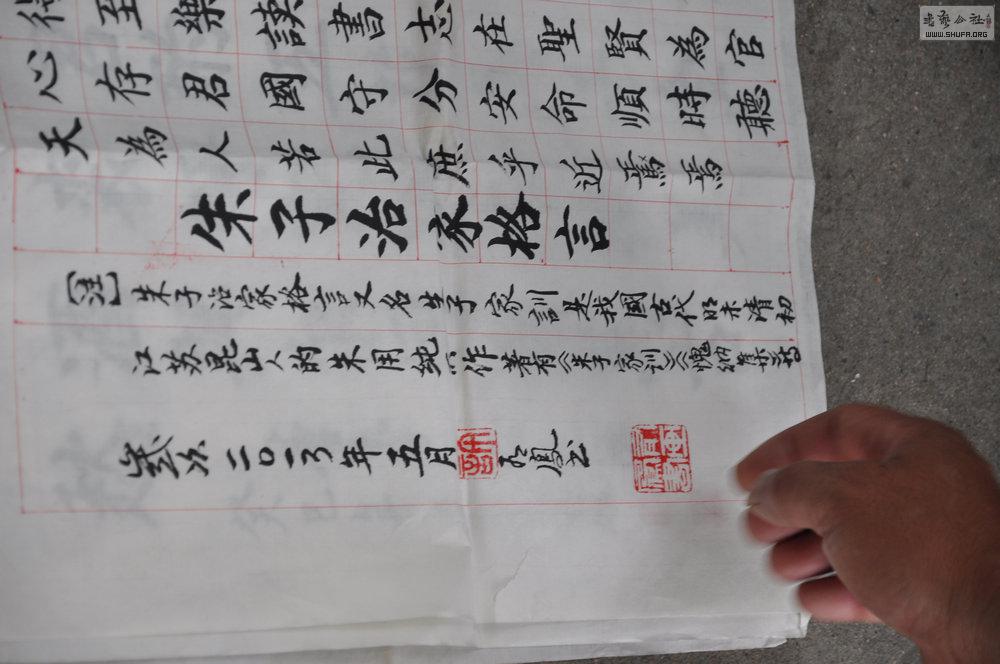 得至樂讀書志在聖賢為官
心存君國守分安命順時聽
天為人若此庶乎近焉焉
朱子治家格言
[注]朱子治家格言又名朱子家訓是我國古代明末清初
江苏昆山人的朱用純作著有《朱子家训》《愧纳集》等
歲次二〇一三年五月 鳳书
书艺公社
WWW.SHUFA.ORG